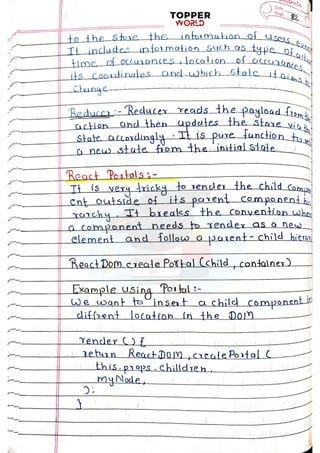 TOPPER
WORLD
to the store the information of users
It includes information such as type of
time of occurances, location of occurances,
its coordinates and which state it aims to
change.
Reducer :- Reducer reads the payload from
action and then updates the store via
state accordingly. It is pure function to
a new state from the initial state.
React Portals :-
It is very tricky to render the child
ent outside of its parent component
rarchy. It breaks the convention
a component needs to render as a new
element and follow a parent-child
ReactDom.createPortal (child, container)
Example using Portal :-
We want to insert a child component
diffrent location in the DOM
render () {
return ReactDOM.createPortal (
this.props.children,
myNode,
);
}